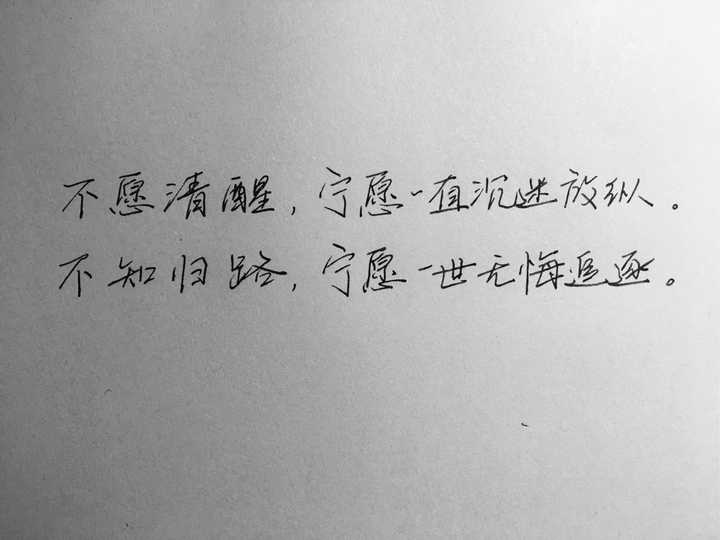 不愿清醒，宁愿一直沉迷放纵。
不知归路，宁愿一世无悔追逐。